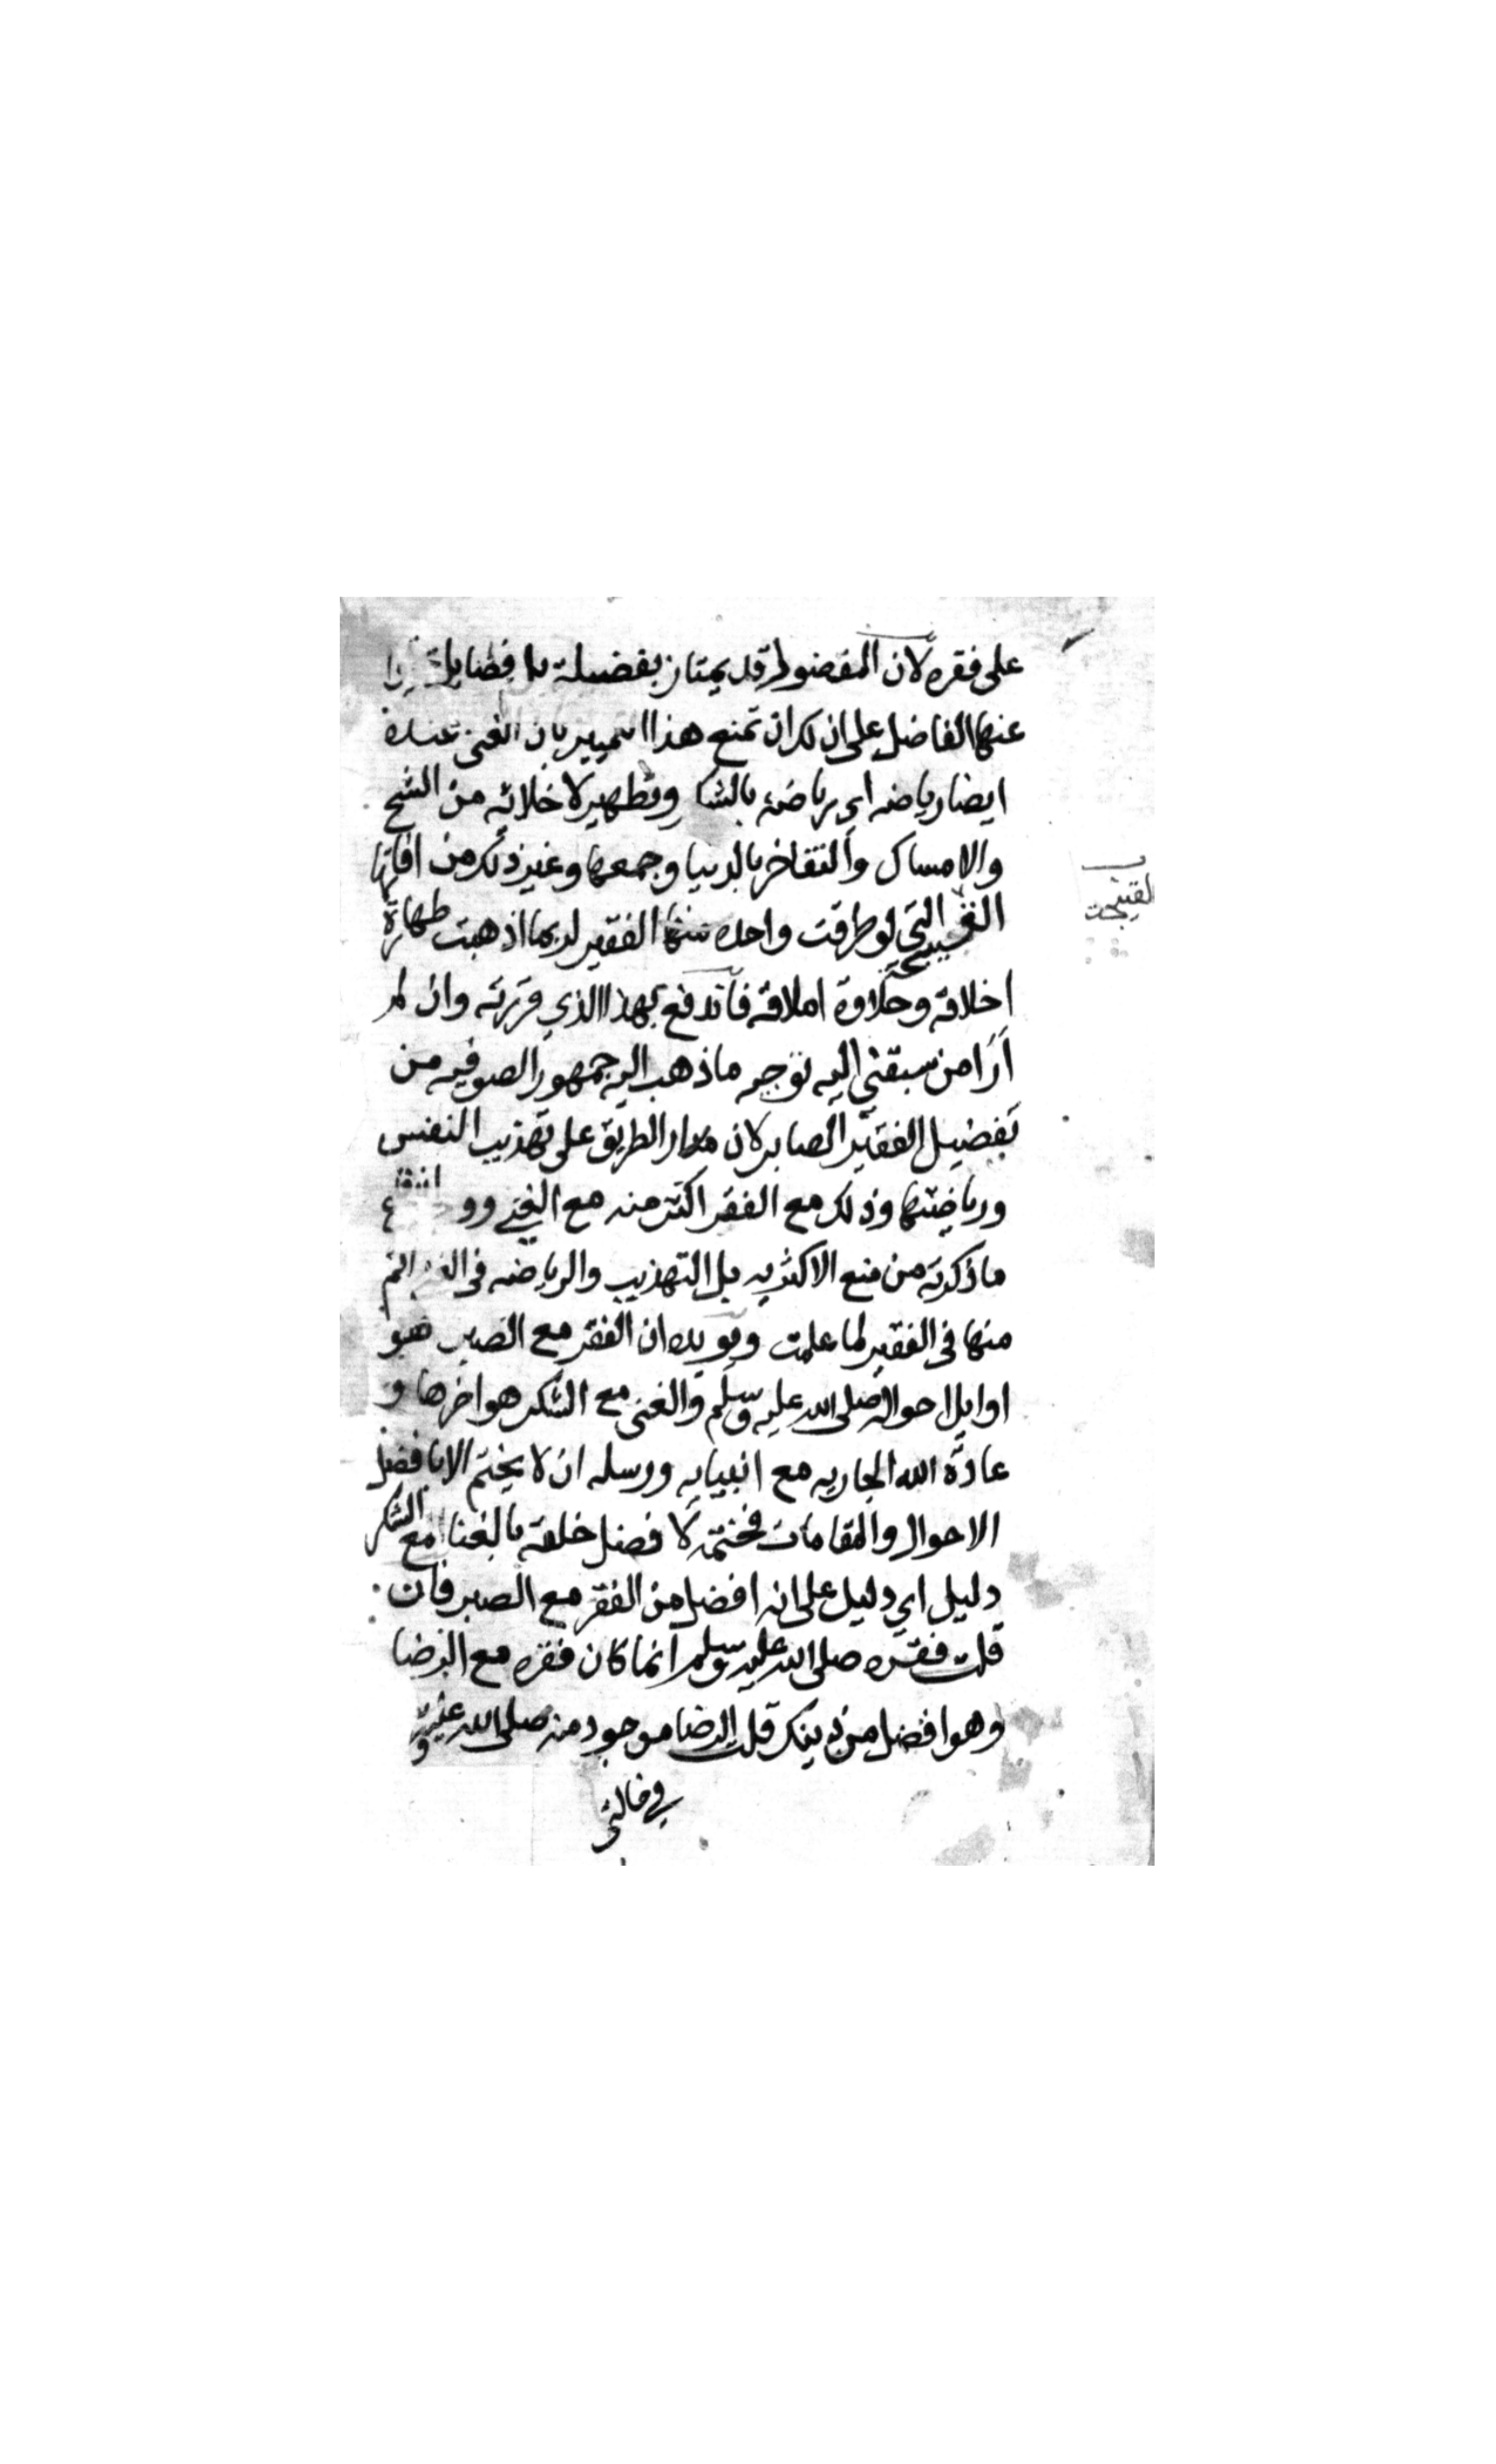 على فقره لان المفضول قد يمتاز بفضيلة بل فضايل
عنها الفاضل على ان لك ان تمنع هذا التمييز بان الغنى عنده
ايضا رياضه اي رياضة بالشكر وتطهير لاخلاقه من الشح
والامساك والتفاخر بالدنيا وجمعها وغير ذلك من افاتها
القبيحة التي لو طرقت واحده منها الفقير لربما اذهبت طهارة
اخلاقه وحلاوة املاقه فاندفع بهذا الذي قررته وان لم
أرَ من سبقني اليه توجيه ما ذهب اليه جمهور الصوفيه من
تفضيل الفقير الصابر لان مدار الطريق على تهذيب النفس
ورياضتها وذلك مع الفقر اكثر منه مع الغنى و
ما ذكرته من منع الاكثريه بل التهذيب والرياضه في اتم
منها في الفقير لما علمت ويويده ان الفقر مع الصبر هو
اوايل احواله صلى الله عليه وسلم والغنى مع الشكر هو اخرها و
عادة الله الجاريه مع انبيايه ورسله ان لا يختم الا بافضل
الاحوال والمقامات فختمه لافضل خلقه بالغنا مع الشكر
دليل اي دليل على انه افضل من الفقر مع الصبر فان
قلت فقره صلى الله عليه وسلم انما كان فقره مع الرضا
وهو افضل من ذينك قلت الرضا موجود منه صلى الله عليه و
في حالتي